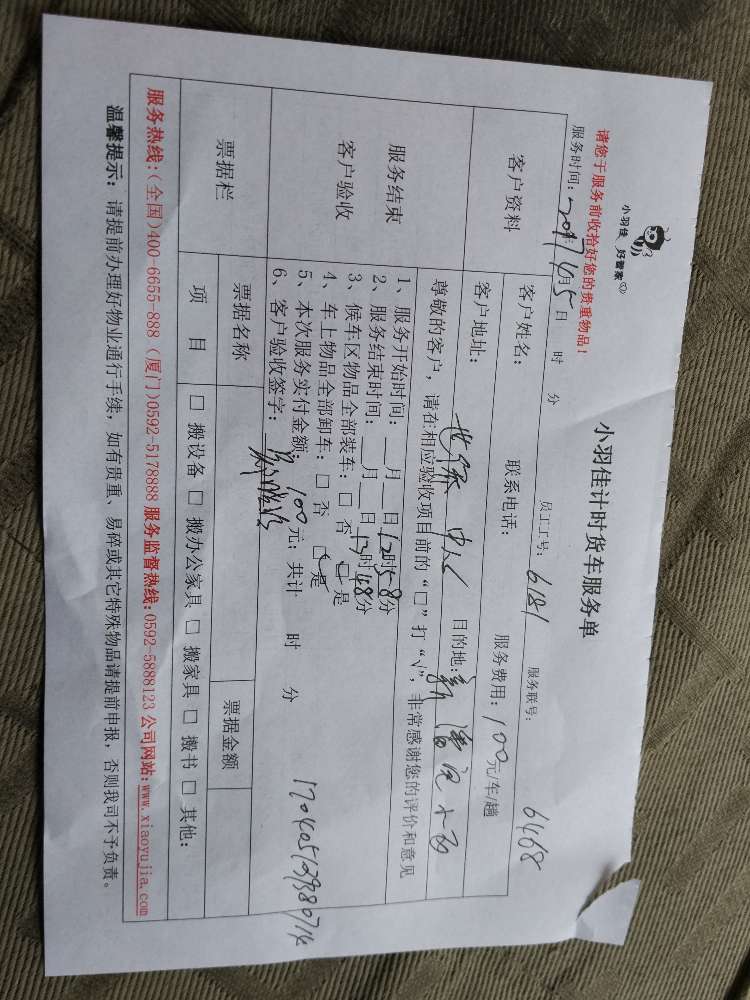 小羽佳 好管家
小羽佳计时货车服务单
请您于服务前收拾好您的贵重物品!
服务时间: 2017年4月5日 时 分 员工工号: 6181 服务联号: 6468
客户资料
客户姓名: 联系电话: 服务费用: 100元/车/趟
客户地址: 世 中心 目的地: 新
服务结束
客户验收
尊敬的客户，请在相应验收项目前的“□”打“√”，非常感谢您的评价和意见
1、服务开始时间: __月__日12时58分
2、服务结束时间: __月__日13时48分
3、候车区物品全部装车: □ 否 □ 是
4、车上物品全部卸车: □ 否 □ 是
5、本次服务实付金额: 100元; 共计 时 分
6、客户验收签字:
17040512938071k
票据栏 票据名称 票据金额
项 目 □ 搬设备 □ 搬办公家具 □ 搬家具 □ 搬书 □ 其他:
服务热线:(全国)400-6655-888 (厦门)0592-5178888 服务监督热线:0592-5888123 公司网站:www.xiaoyujia.com
温馨提示: 请提前办理好物业通行手续，如有贵重、易碎或其它特殊物品请提前申报，否则我司不予负责。